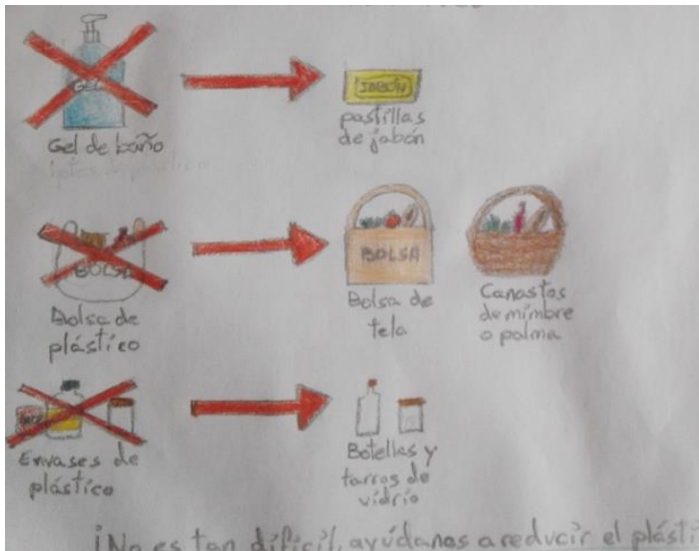 GEL
JABÓN
Gel de baño
pastillas
de jabón
BOLSA
BOLSA
Bolsa de
plástico
Bolsa de
tela
Canastos
de mimbre
o palma
Envases de
plástico
Botellas y
tarros de
vidrio
¡No es tan difícil, ayúdanos a reducir el plásti